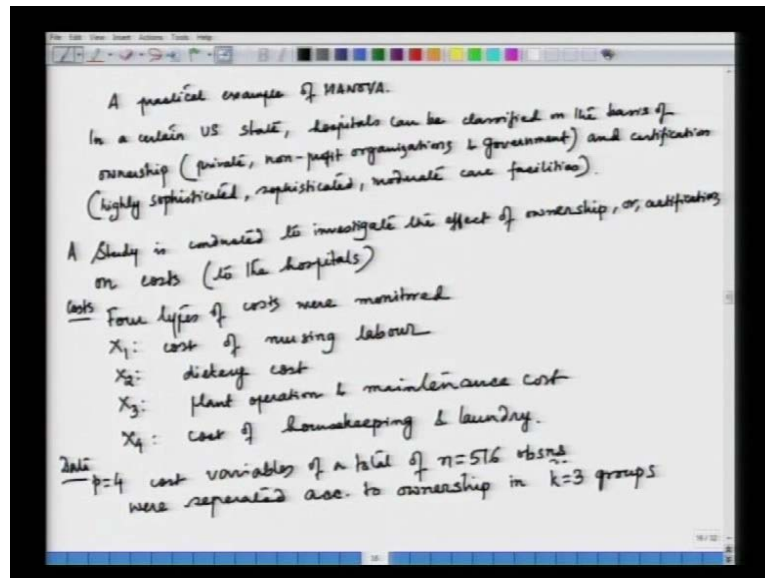 File Edit View Insert Actions Tools Help
A practical example of MANOVA.
In a certain US state, hospitals can be classified on the basis of
ownership (private, non-profit organizations & government) and certification
(highly sophisticated, sophisticated, moderate care facilities).
A Study is conducted to investigate the effect of ownership, or, certification
on costs (to the hospitals)
Costs Four types of costs were monitored
X1: cost of nursing labour
X2: dietary cost
X3: plant operation & maintenance cost
X4: cost of housekeeping & laundry.
Data p=4 cost variables of a total of n=516 obsns
were seperated acc. to ownership in k=3 groups
16